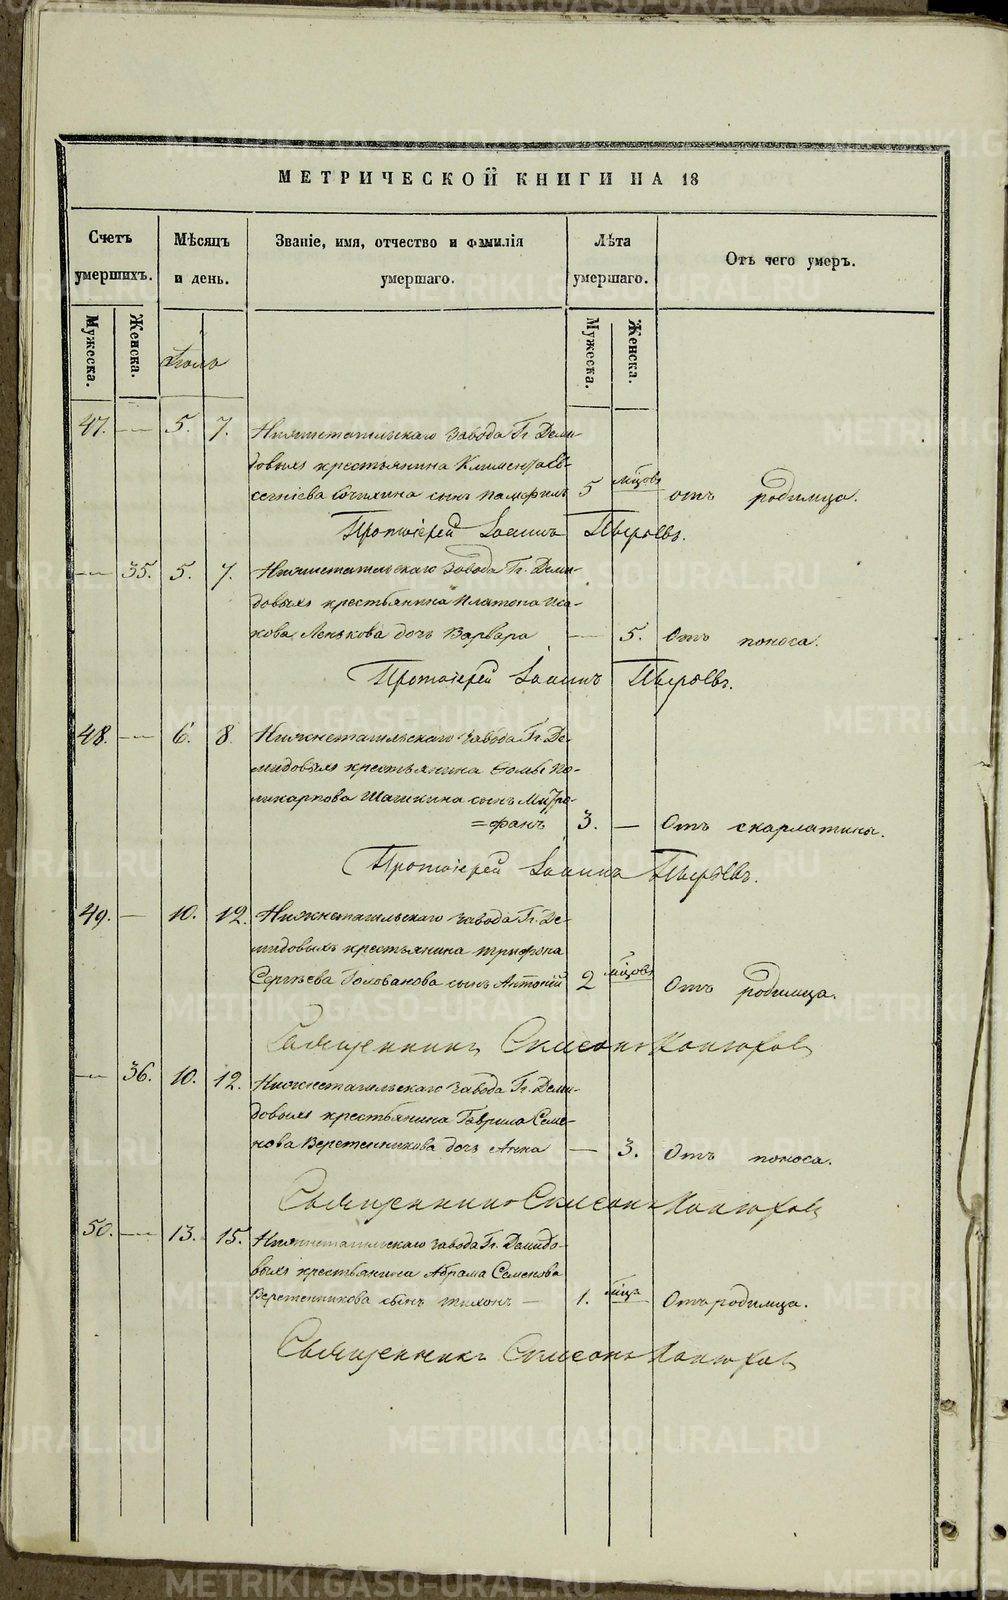 МЕТРИЧЕСКОЙ КНИГИ НА 18
Счетъ умершихъ.
Мужеска.
Женска.
Мѣсяцъ и день.
Званіе, имя, отчество и фамилія умершаго.
Лѣта умершаго.
Мужеска.
Женска.
Отъ чего умеръ.
Іюль
47. — 5. 7. Нижнетагильскаго завода Гг. Деми-
довыхъ крестьянина Климента Ев-
сегніева сынъ Памфилъ 5 мѣсцовъ отъ родимца.
Протоіерей Іоаннъ
— 35. 5. 7. Нижнетагильскаго завода Гг. Деми-
довыхъ крестьянина Платона Иса-
кова Ленькова дочь Варвара — 5. Отъ поноса.
Протоіерей Іоаннъ
48. — 6. 8. Нижнетагильскаго завода Гг. Де-
мидовыхъ крестьянина Ѳомы По-
ликарпова Шашкина сынъ Митро-
=фанъ 3. — Отъ скарлатины.
Протоіерей Іоаннъ
49. — 10. 12. Нижнетагильскаго завода Гг. Де-
мидовыхъ крестьянина Трифона
Сергѣева Голованова сынъ Антоній 2 мѣсцовъ Отъ родимца.
Священникъ Симеонъ Конюховъ
— 36. 10. 12. Нижнетагильскаго завода Гг. Деми-
довыхъ крестьянина Гаврила Семе-
нова Веретенникова дочь Анна — 3. Отъ поноса.
Священникъ Симеонъ Конюховъ
50. — 13. 15. Нижнетагильскаго завода Гг. Демидо-
выхъ крестьянина Абрама Семенова
Веретенникова сынъ Тихонъ — 1. мѣсца Отъ родимца.
Священникъ Симеонъ Конюховъ
METRIKI.GASO-URAL.RU